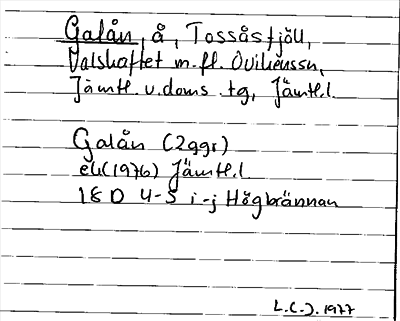 Galån, å, Tossåsfjäll,
Dalskaftet m.fl. Ovikenssn,
Jämtl. v. doms. tg, Jämtl.l
Galån (2ggr)
ek(1976) Jämtl.l
18 D 4-5 i-j Högbrännan
L.C.J. 1977